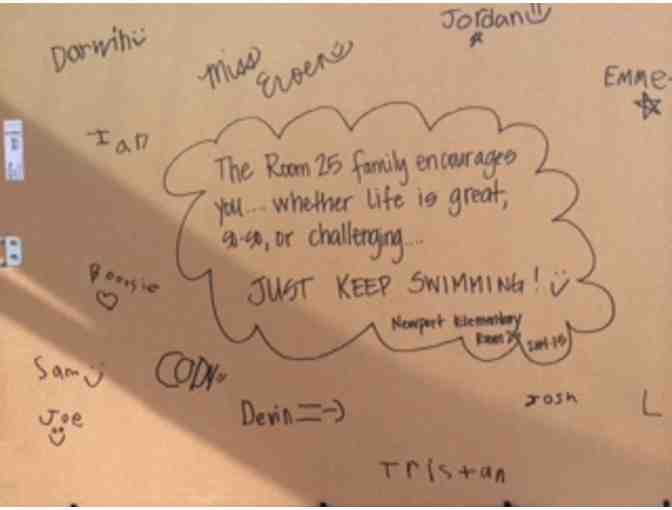 Jordan
Darwin
Miss
Emme
Ian
The Room 25 family encourages
you.... whether life is great,
so-so, or challenging....
JUST KEEP SWIMMING!
Newport Elementary
Room 25 2014-15
Sam
CODY
Joe
Devin =-)
Josh
L
Tristan